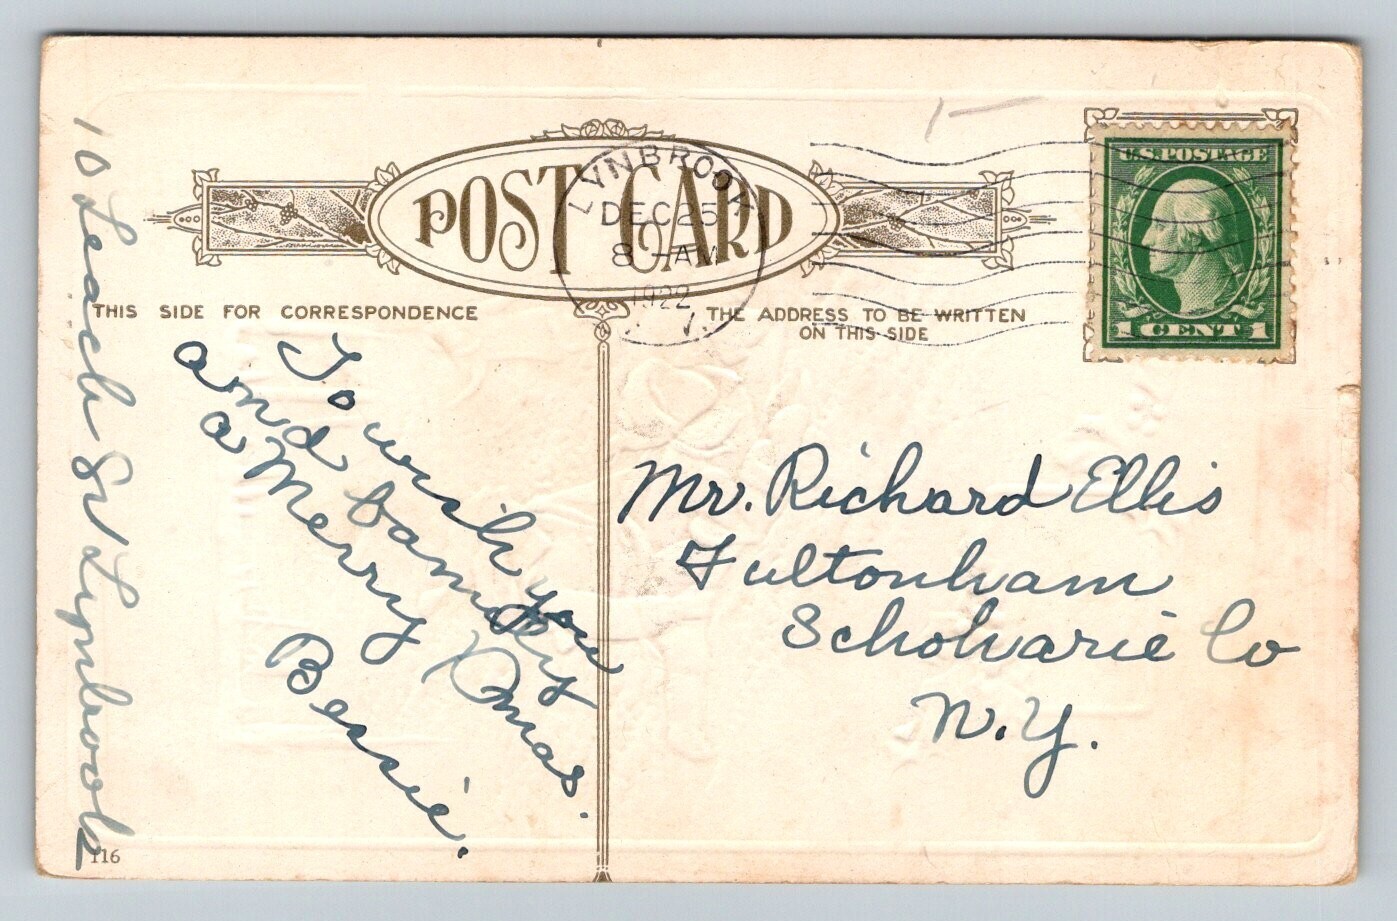 POST CARD
LYNBROOK
DEC 25
8 - AM
1922
U.S. POSTAGE
1 CENT 1
THIS SIDE FOR CORRESPONDENCE
THE ADDRESS TO BE WRITTEN
ON THIS SIDE
To wish you
and family
a Merry Xmas.
Bessie.
10 Leach St Lynbrook
Mr. Richard Ellis
Fultonham
Schoharie Co
N.Y.
116